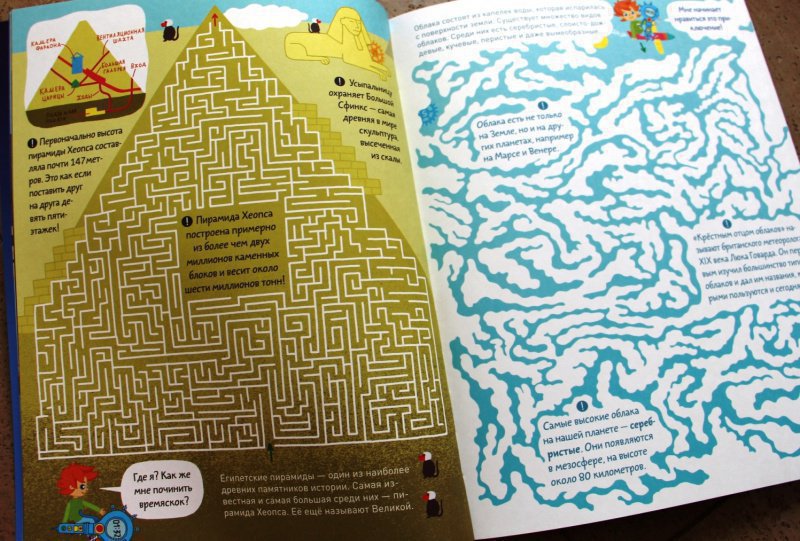 КАМЕРА
ФАРАОНА
ВЕНТИЛЯЦИОННАЯ
ШАХТА
БОЛЬШАЯ
ГАЛЕРЕЯ
ВХОД
КАМЕРА
ЦАРИЦЫ
ХОДЫ
Первоначально высота
пирамиды Хеопса состав-
ляла почти 147 мет-
ров. Это как если
поставить друг
на друга де-
вять пяти-
этажек!
Усыпальницу
охраняет Большой
Сфинкс — самая
древняя в мире
скульптура,
высеченная
из скалы.
Пирамида Хеопса
построена примерно
из более чем двух
миллионов каменных
блоков и весит около
шести миллионов тонн!
Где я? Как же
мне починить
времяскок?
01:32
Египетские пирамиды — один из наиболее
древних памятников истории. Самая из-
вестная и самая большая среди них — пи-
рамида Хеопса. Её ещё называют Великой.
Облака состоят из капелек воды, которая испарилась
с поверхности земли. Существует множество видов
облаков. Среди них есть серебристые, слоисто-дож
девые, кучевые, перистые и даже вымеобразные
Мне начинает
нравиться это при-
ключение!
Облака есть не только
на Земле, но и на дру-
гих планетах, например
на Марсе и Венере.
«Крёстным отцом облаков» на-
зывают британского метеоролог
XIX века Люка Говарда. Он пер
вым изучил большинство тип
облаков и дал им названия,
рыми пользуются и сегодня
Самые высокие облака
на нашей планете — сереб-
ристые. Они появляются
в мезосфере, на высоте
около 80 километров.